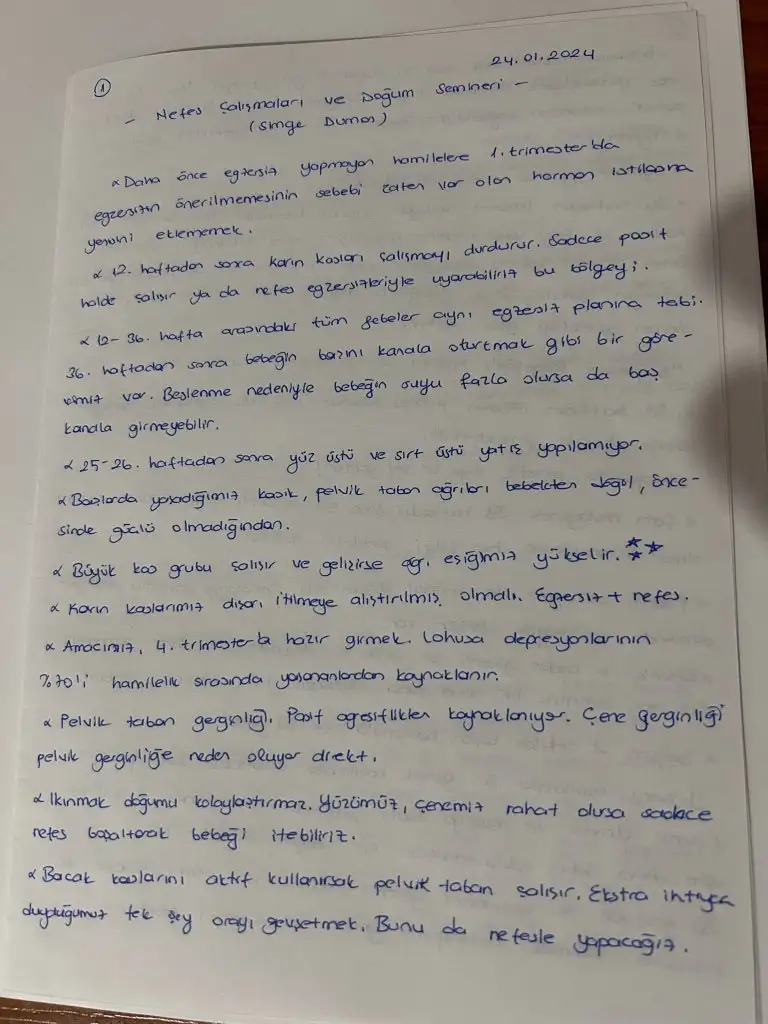 1
24.01.2024
- Nefes Çalışmaları ve Doğum Semineri -
(Simge Duman)
∝ Daha önce egzersiz yapmayan hamilelere 1. trimester'da
egzersizin önerilmemesinin sebebi zaten var olan hormon istilasına
yenisini eklememek.
∝ 12. haftadan sonra karın kasları çalışmayı durdurur. Sadece pasif
halde çalışır ya da nefes egzersizleriyle uyarabiliriz bu bölgeyi.
∝ 12-36. hafta arasındaki tüm gebeler aynı egzersiz planına tabi.
36. haftadan sonra bebeğin başını kanala oturtmak gibi bir göre-
vimiz var. Beslenme nedeniyle bebeğin suyu fazla olursa da baş
kanala girmeyebilir.
∝ 25-26. haftadan sonra yüz üstü ve sırt üstü yatış yapılamıyor.
∝ Başlarda yaşadığımız kasık, pelvik taban ağrıları bebekten değil, önce-
sinde güçlü olmadığından.
∝ Büyük kas grubu çalışır ve gelişirse ağrı eşiğimiz yükselir. ***
∝ Karın kaslarımız dışarı itilmeye alıştırılmış olmalı. Egzersiz + nefes.
∝ Amacımız, 4. trimester'a hazır girmek. Lohusa depresyonlarının
%70'i hamilelik sırasında yaşananlardan kaynaklanır.
∝ Pelvik taban gerginliği, Pasif agresiflikten kaynaklanıyor. Çene gerginliği
pelvik gerginliğe neden oluyor direkt.
∝ Ikınmak doğumu kolaylaştırmaz. Yüzümüz, çenemiz rahat olursa sadece
nefes boşaltarak bebeği itebiliriz.
∝ Bacak kaslarını aktif kullanırsak pelvik taban çalışır. Ekstra ihtiyaç
duyduğumuz tek şey orayı gevşetmek. Bunu da nefesle yapacağız.